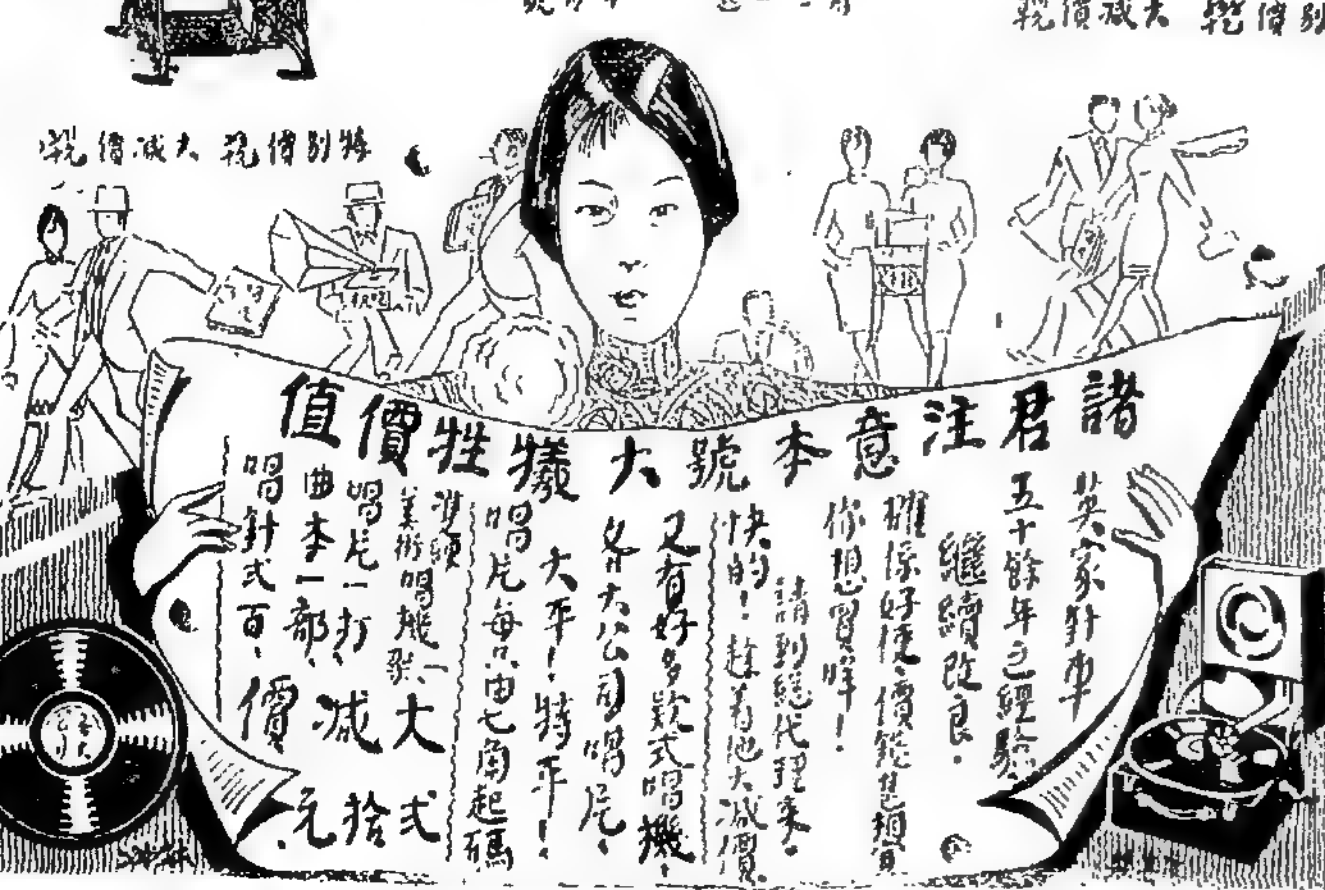 大減價
特別價 大減價
諸君注意本號大犧牲價值
英家針車
五十餘年之經驗
繼續改良.
確係好使、價錢
你想買咩!
請到總代理來.
快的!趁着他大減價
又有好多款式唱機.
各大公司唱片、
大平!特平!
唱片每只由七角起碼
美術唱機一架、
唱片一打、
曲本一部、
唱針弍百、
大減價
弍拾元.